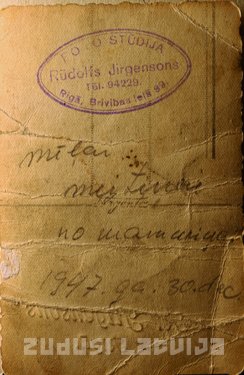 FOTO STŪDIJA
Rūdolfs Jirgensons
Tāl. 94229.
Rīgā, Brīvības ielā 93
mīļai
meitiņai
no mammiņas
1947. ga. 30. dec
ZUDUSI LATVIJA